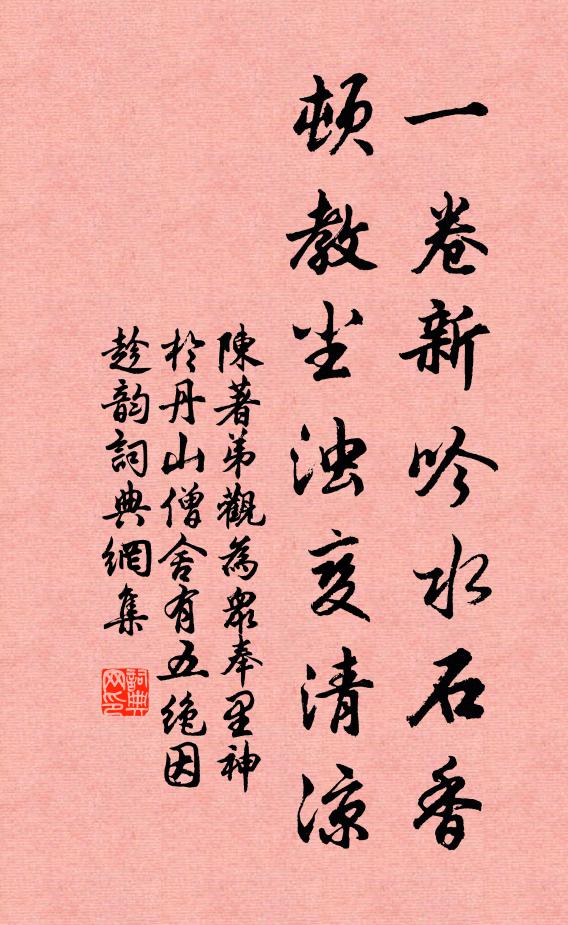 一卷新吟水石香
頓教尘浊变清凉
陳著弟觀為眾奉里神
於丹山僧舍有五絶因
趁韵詞典網集
詞典
网印